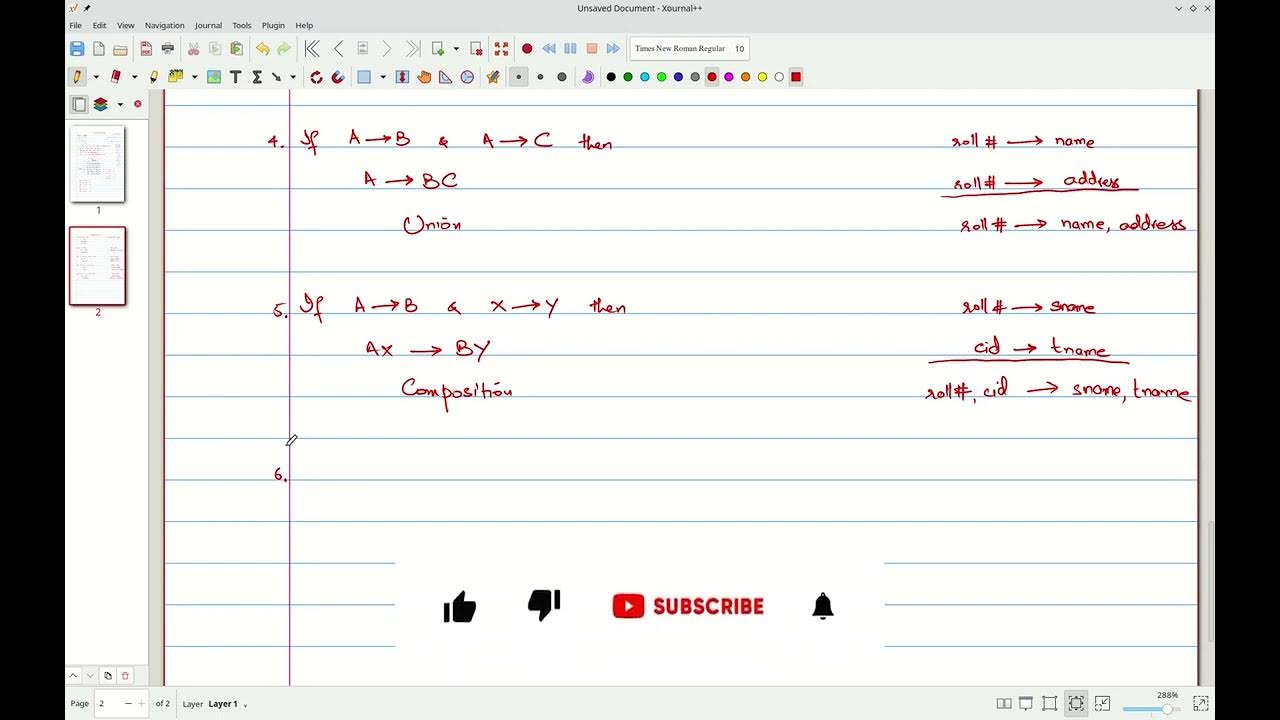 Unsaved Document - Xournal++
File Edit View Navigation Journal Tools Plugin Help
Times New Roman Regular 10
4. If A → B & A → C then
roll # → name
A → BC
roll # → address
Union
roll # → name, address
5. If A → B & X → Y then
roll # → sname
AX → BY
cid → tname
Composition
roll #, cid → sname, tname
6.
1
2
SUBSCRIBE
Page 2 of 2 Layer Layer 1
288%